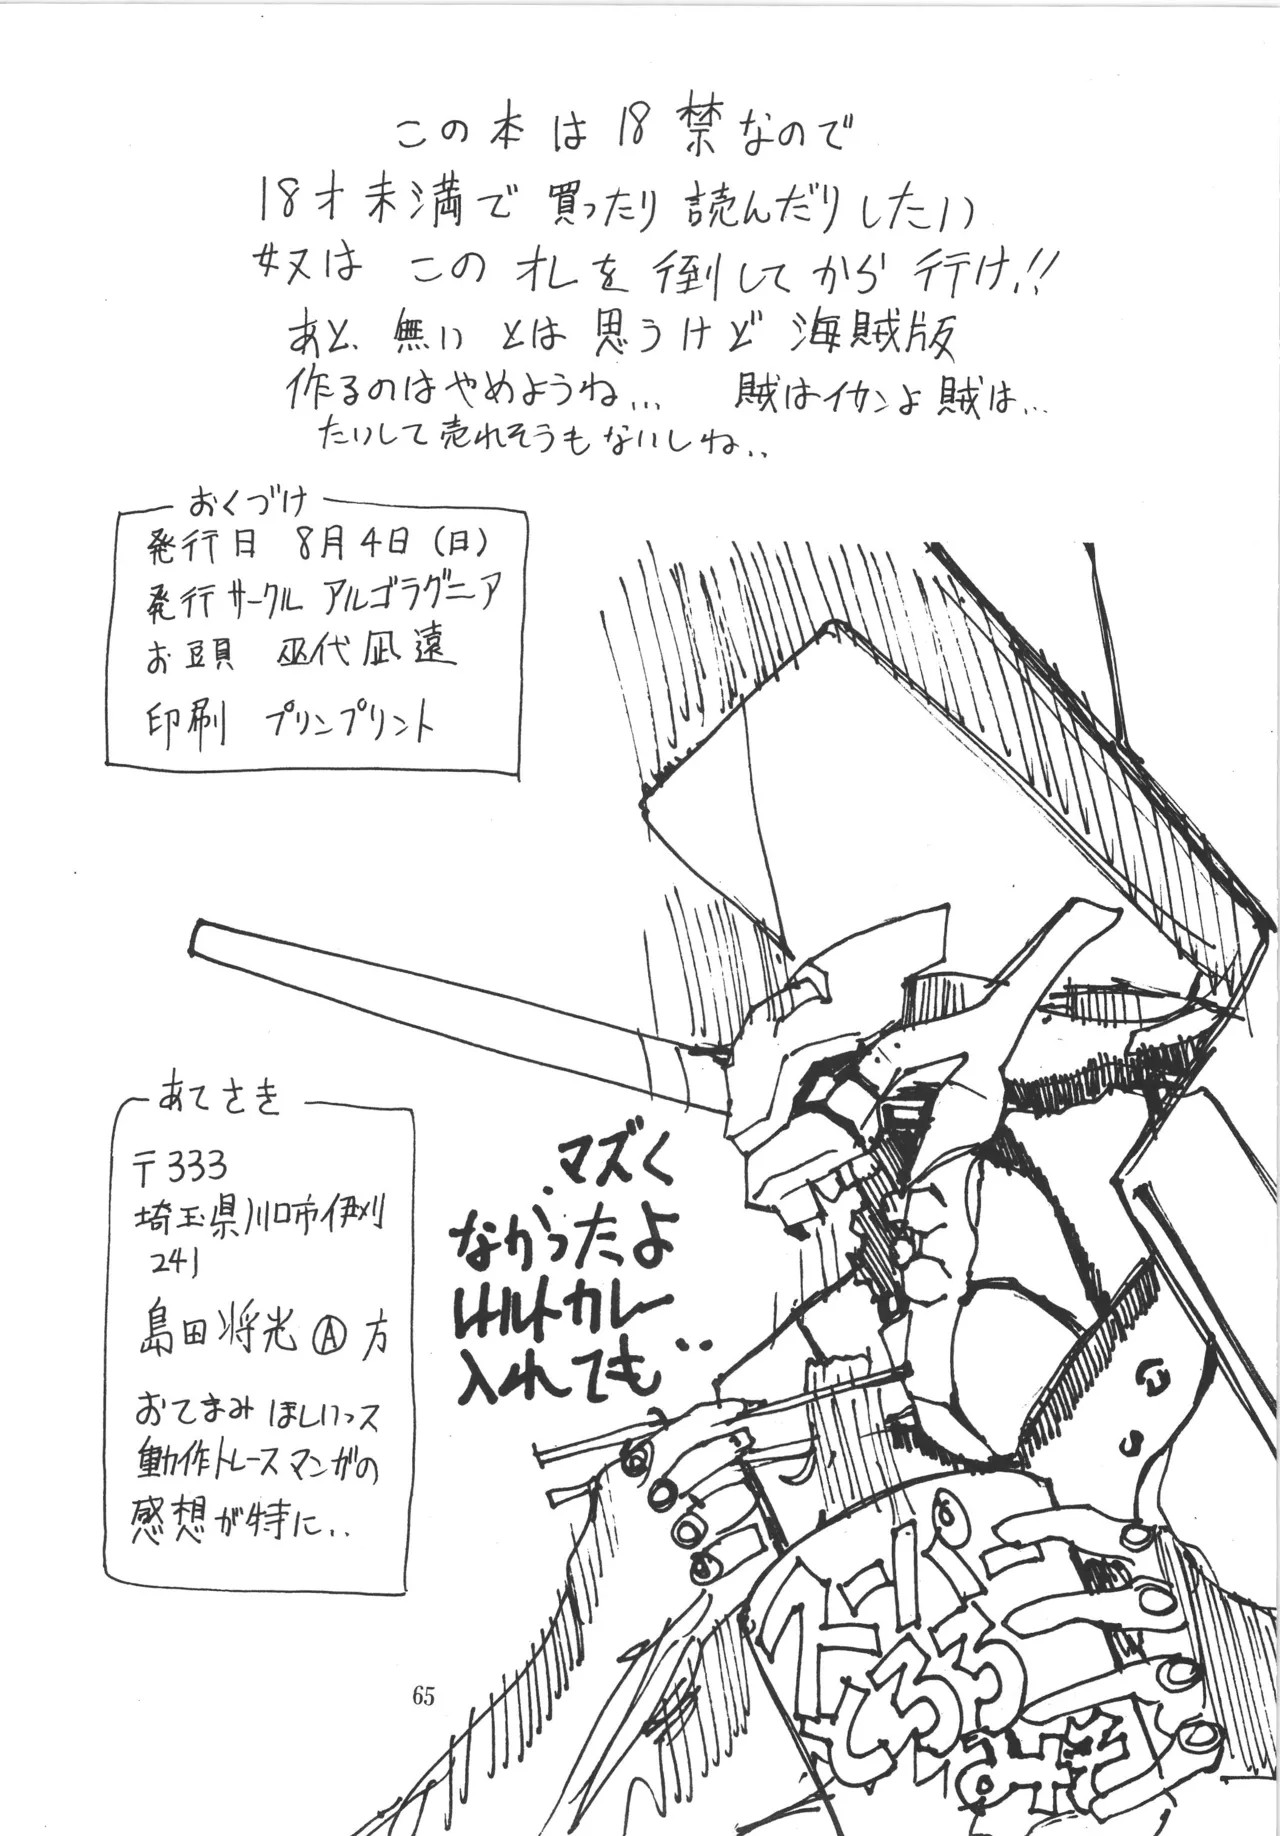 この本は18禁なので
18才未満で買ったり読んだりしたい
奴はこのオレを倒してから行け!!
あと、無いとは思うけど海賊版
作るのはやめようね... 賊はイカンよ賊は...
たいして売れそうもないしね..
おくづけ
発行日 8月4日(日)
発行サークル アルゴラグニア
お頭 巫代凪遠
印刷 プリンプリント
あてさき
〒333
埼玉県川口市伊刈
241
島田将光Ⓐ方
おてまみほしいっス
動作トレースマンガの
感想が特に..
マズく
なかったよ
レトルトカレー
入れても..
スーパー
65